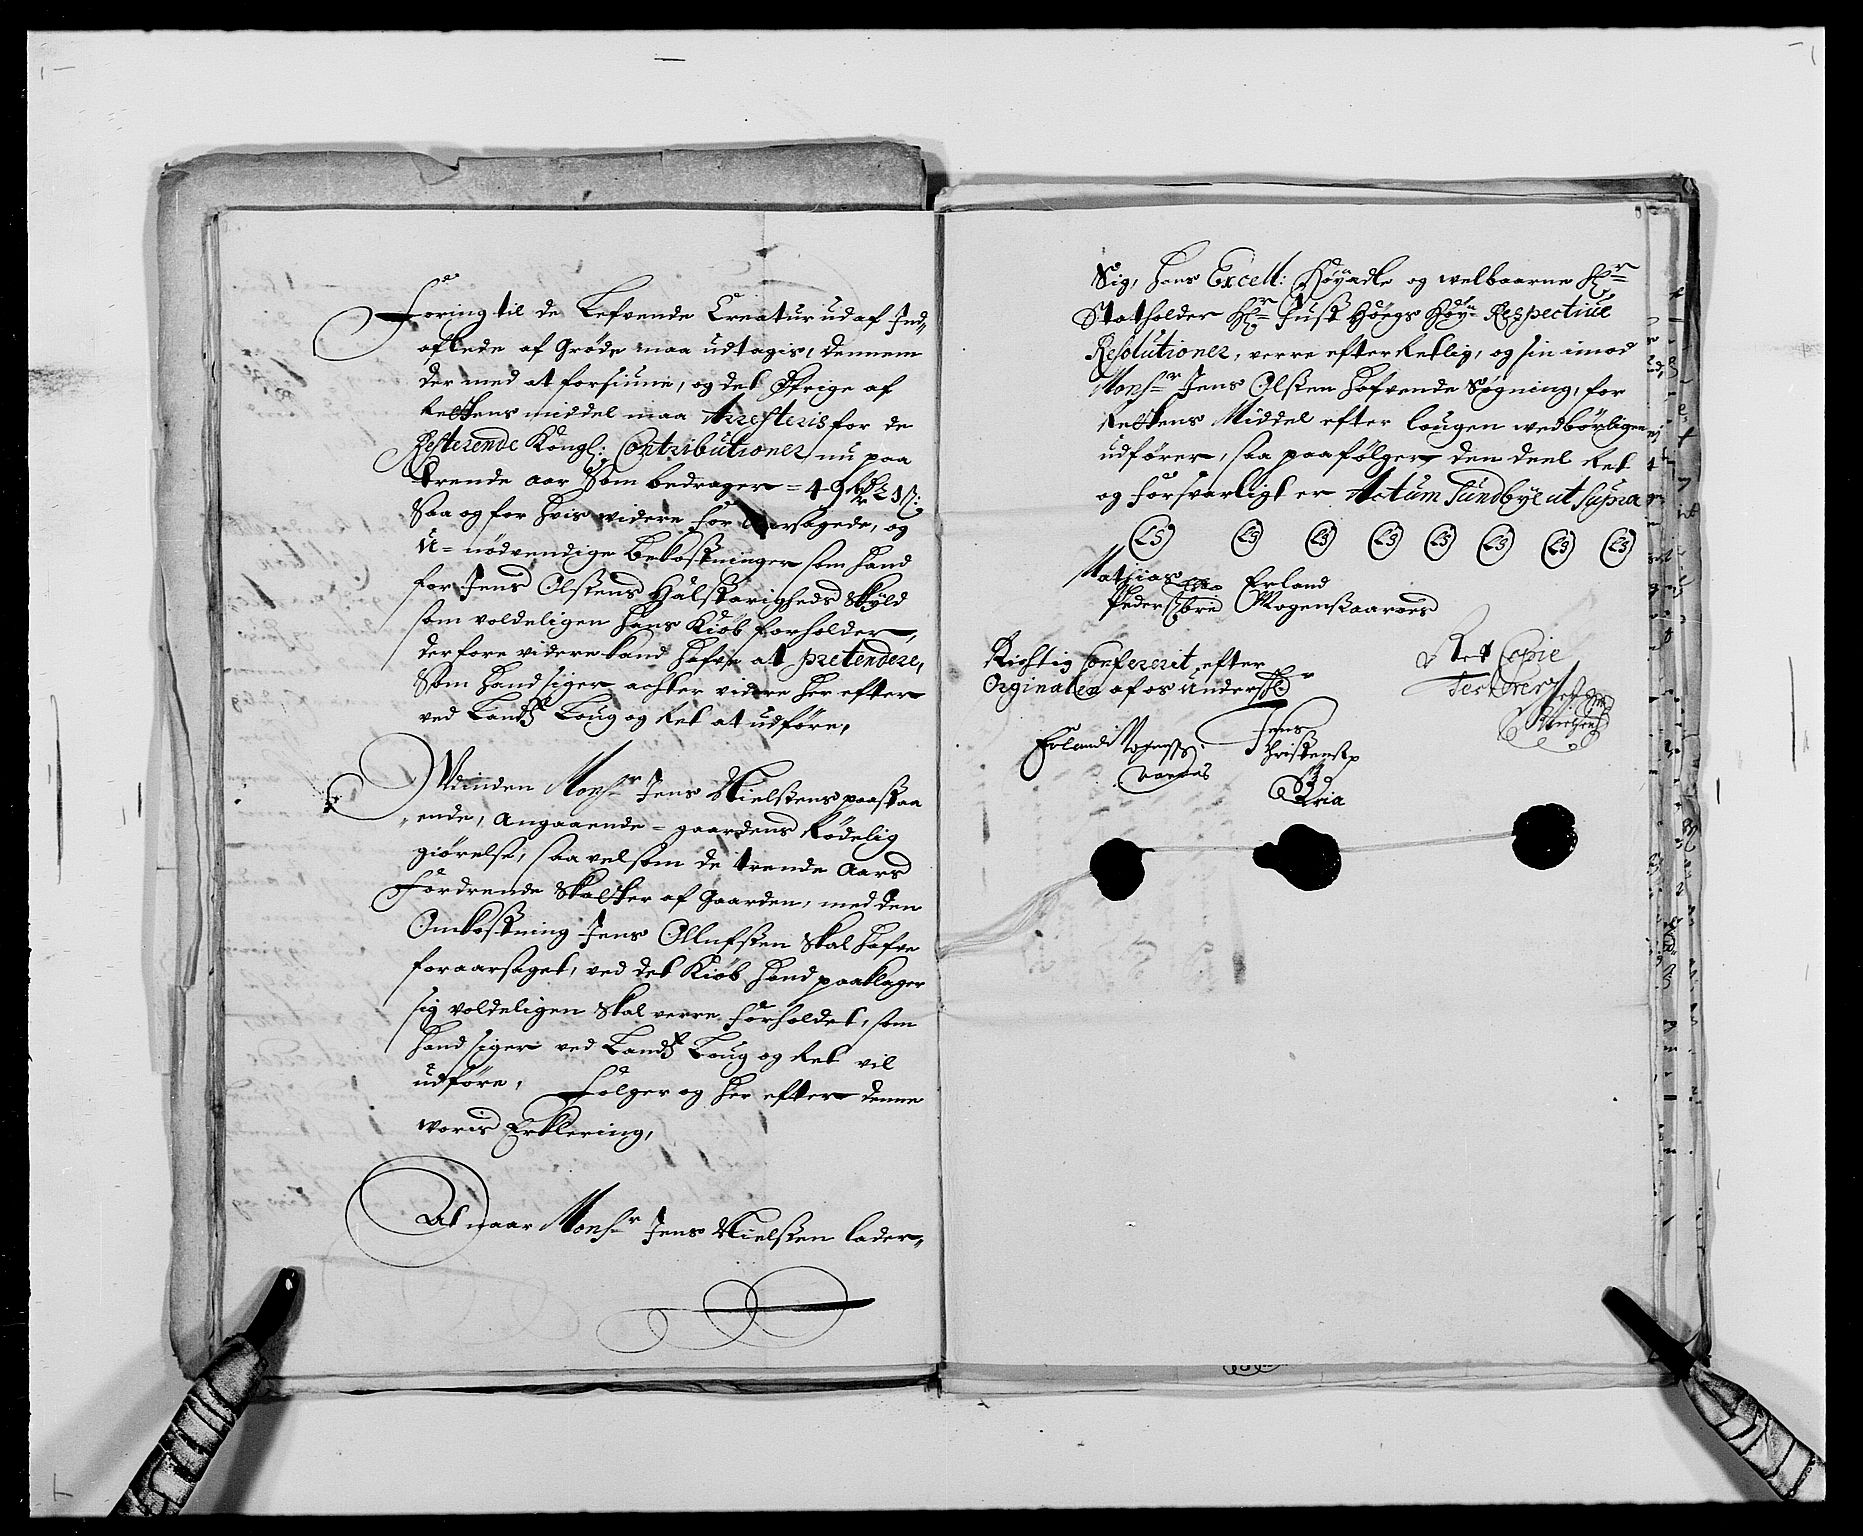 Foring til de Lefvende Creatur ud af Ind„
aflede af Grøde maa udtagis, dennem
der med at forsiune, og det Øfrige af
Rettens middel maa Arresteris for de
Resterende Kongl: Contributioner nu paa
trende aar Som bedrager = 49
Saa og for hvis widere for aarsagede, og
U=nødvendige Bekostninger som hand
for Jens Olssens Halsstarigheds Skyld
som voldeligen hans Kiøb forholder,
derfore videre kand hafve at pretendere,
Som hand siger achter videre her efter
ved Lands Loug og Ret at udføre,
Monsr Jens Nielssens paastaa
„ende, Angaaende = gaardens Rødelig
giørelse, saa vel som de trende Aars
Fordrende Skatter af Gaarden, med den
Omkostning Jens Ollufssen Skal hafve
foraarsaget, ved det Kiøb hand paaklager
sig voldeligen Skal verre forholdet, som
hand siger ved Lands Loug og Ret vil
udføre, Følger og her efter denne
voris Erklering,
At naar Monsr Jens Nielssen lader„
Sig, hans Excell: Høyædle og welbaarne Hr
Statholder Hr Just Høegs Høy Respective
Resolutioner, verre efterretlig, og sin imod
Monsr Jens Olssen hafvende Søgning, for
Rettens Middel efter lougen wedbørligen
udfører, saa paafølger den deel Ret
og forsvarligt er Actum Sundbye ut supra
LS LS LS LS LS LS LS LS
Mathias Erland
Peders Mogenss
Rigtig Confererit efter
Orginalen af os Underschr
Ret Copie
Testerer
Erland Mogenss
Jens
Christenss